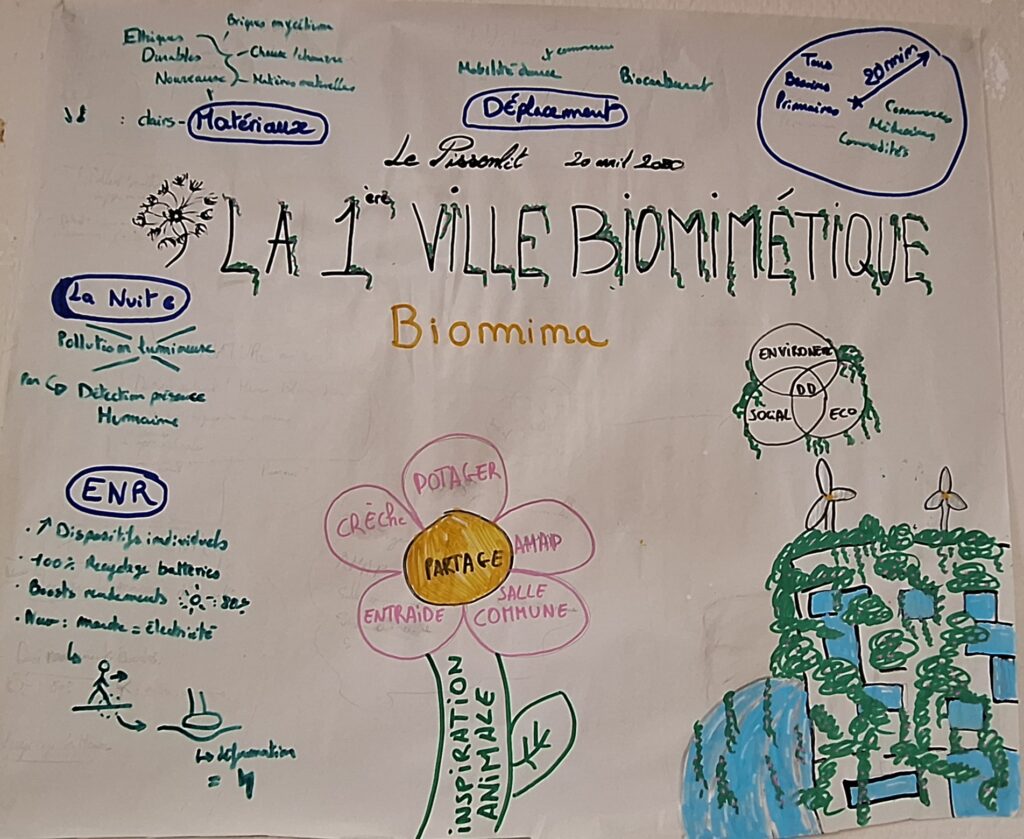 Ethiques
Durables
Nouveaux
Briques mycélium
Chaux / chanvre
Matières naturelles
: clairs - Matériaux
Mobilité douce
Biocarburant
Déplacement
Tous
Besoins
Primaires
20 min
Commerces
Médecines
Commodités
Le Pissenlit
LA 1ère VILLE BIOMIMÉTIQUE
Biomima
La Nuit
Pollution lumineuse
Par Détection présence
Humaine
ENVIRONE
DD
SOCIAL
ECO
ENR
. ↗ Dispositifs individuels
. 100% Recyclage batteries
. Boosts rendements : 80%
. New : marche = électricité
↳ déformation
=
POTAGER
CRÈChe
AMAP
PARTAGE
ENTRAIDE
SALLE
COMMUNE
INSPIRATION
ANIMALE